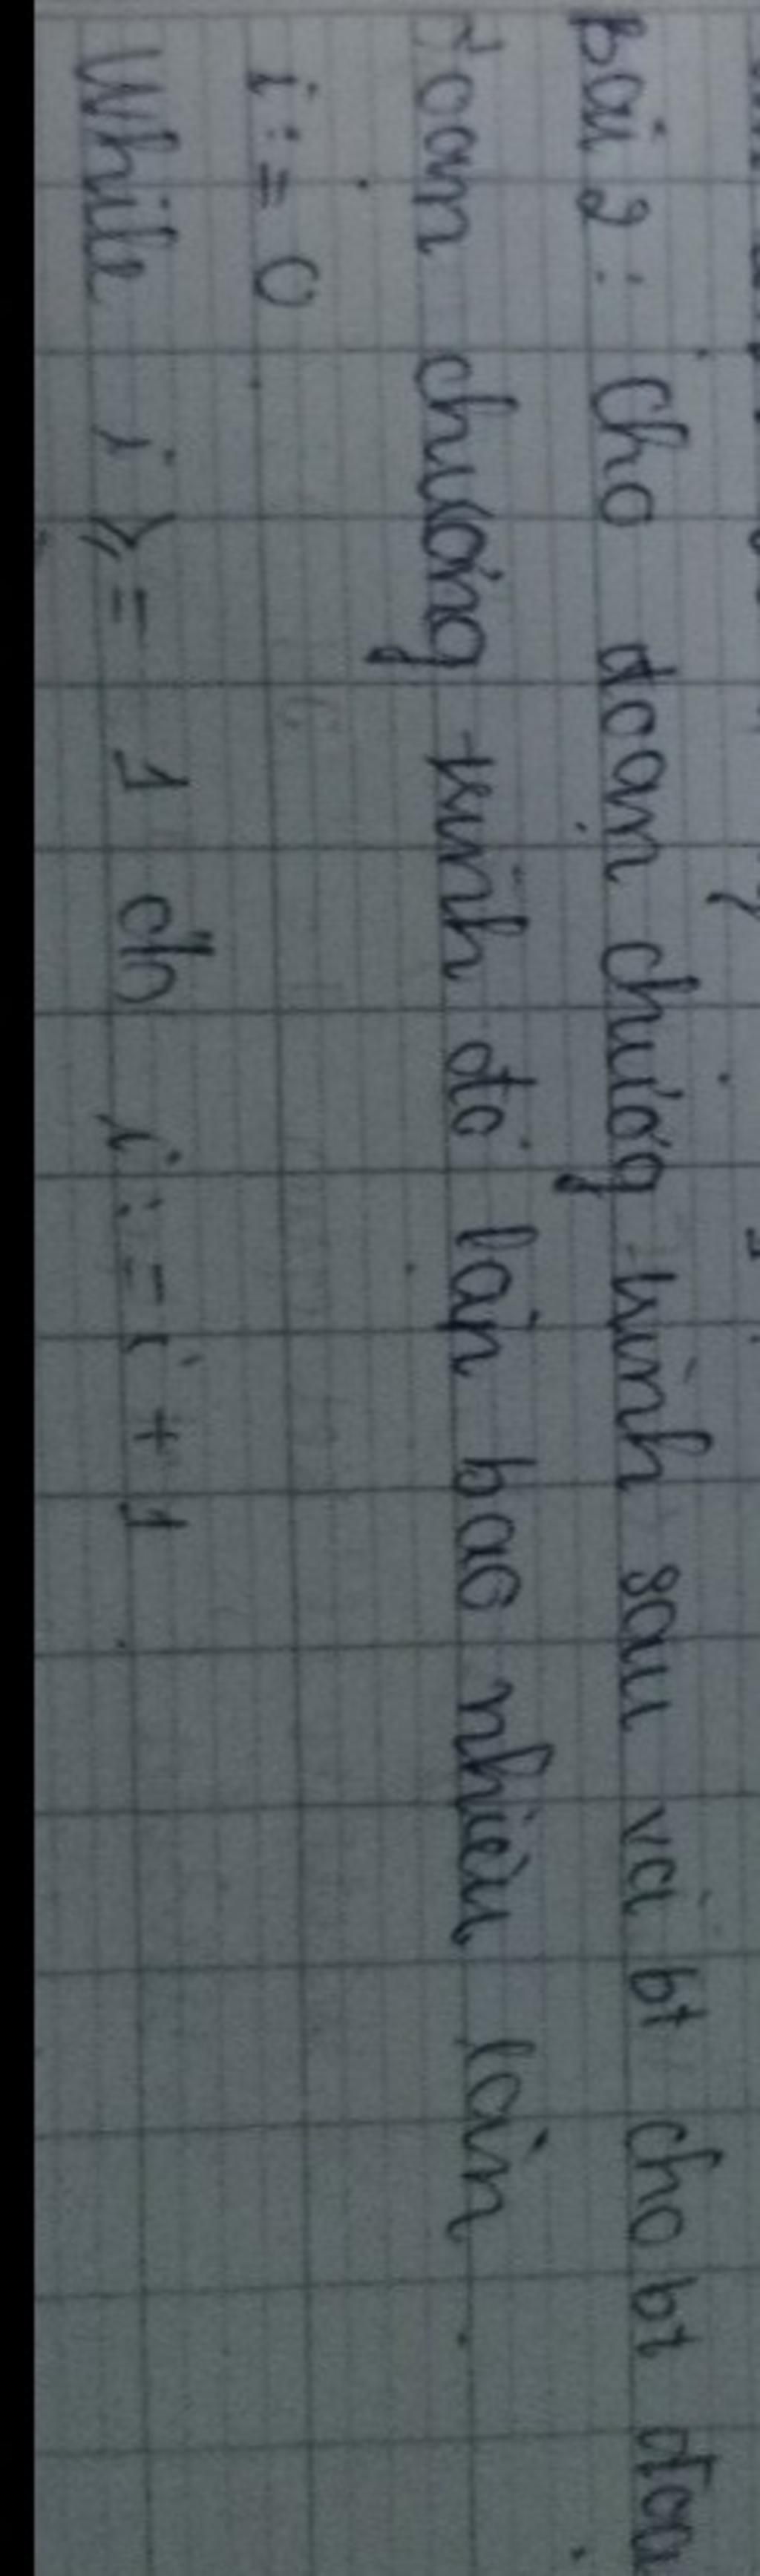 Bài 2: Cho đoạn chương trình sau và bt cho bt đoạn
đoạn chương trình đó lặp bao nhiêu lần
i := 0
While i >= 1 do i := i + 1